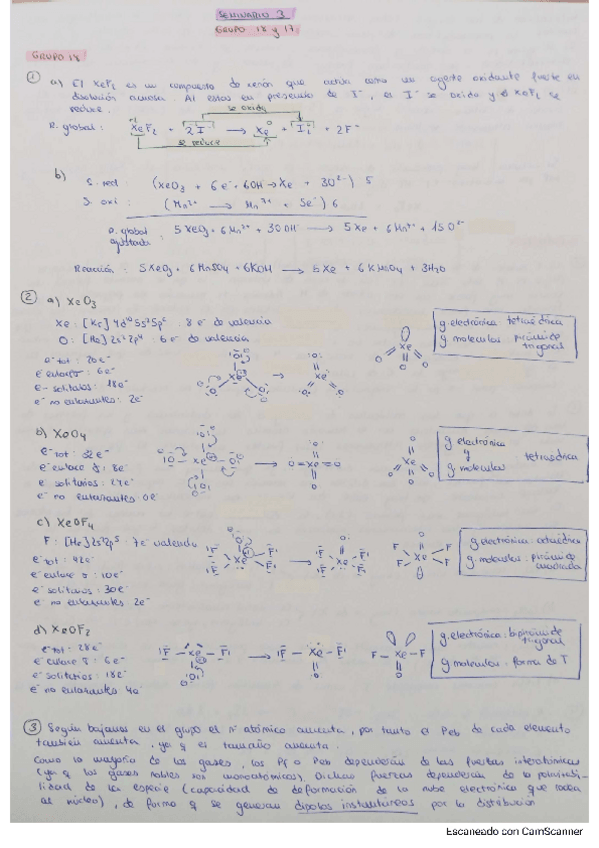 SEMINARIO 3
GRUPO 18 y 17
GRUPO 18
1 a) El XeF2 es un compuesto de xenón que actúa como un agente oxidante fuerte en
disolución acuosa. Al estar en presencia de I⁻, el I⁻ se oxida y el XeF2 se
reduce.
se oxida
R. global: XeF2 + 2I⁻ → Xe + I2 + 2F⁻
se reduce
b) S. red: (XeO3 + 6e⁻ + 6OH → Xe + 3O²⁻) 5
S. oxi: (Mn²⁺ → Mn⁷⁺ + 5e⁻) 6
R. global ajustada: 5XeO3 + 6Mn²⁺ + 30OH⁻ → 5Xe + 6Mn⁷⁺ + 15O²⁻
Reacción: 5XeO3 + 6MnSO4 + 6KOH → 5Xe + 6KMnO4 + 3H2O
2 a) XeO3
Xe: [Kr] 4d¹⁰ 5s² 5p⁶ 8 e⁻ de valencia
O: [He] 2s² 2p⁴ 6 e⁻ de valencia
e⁻ tot: 26e⁻
e⁻ enlace: 6e⁻
e⁻ solitarios: 18e⁻
e⁻ no enlazantes: 2e⁻
g. electrónica: tetraédrica
g. molecular: pirámide trigonal
b) XeO4
e⁻ tot: 32e⁻
e⁻ enlace: 8e⁻
e⁻ solitarios: 24e⁻
e⁻ no enlazantes: 0e⁻
O=Xe=O
g. electrónica
y
g. molecular: tetraédrica
c) XeOF4
F: [He] 2s² 2p⁵ 7e⁻ valencia
e⁻ tot: 42e⁻
e⁻ enlace: 10e⁻
e⁻ solitarios: 30e⁻
e⁻ no enlazantes: 2e⁻
g. electrónica: octaédrica
g. molecular: pirámide cuadrada
d) XeOF2
e⁻ tot: 28e⁻
e⁻ enlace: 6e⁻
e⁻ solitarios: 18e⁻
e⁻ no enlazantes: 4e⁻
F-Xe-F
g. electrónica: bipirámide trigonal
g. molecular: forma de T
3 Según bajamos en el grupo el nº atómico aumenta, por tanto el Peb de cada elemento
también aumenta, ya q el tamaño aumenta.
Como la mayoría de los gases, los Pf o Peb dependerán de las fuerzas interatómicas
(ya q los gases nobles son monoatómicos). Dichas fuerzas dependerán de la polarizabi-
lidad de la especie (capacidad de deformación de la nube electrónica que rodea
al núcleo), de forma q se generan dipolos instantáneos por la distribución
Escaneado con CamScanner